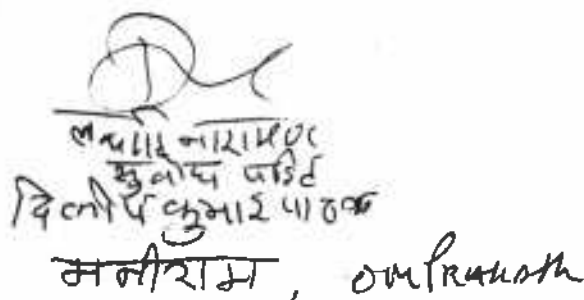 नारायण
सुबोध पंडित
दिलीप कुमार पाठक
मनीराम, Om Prakash